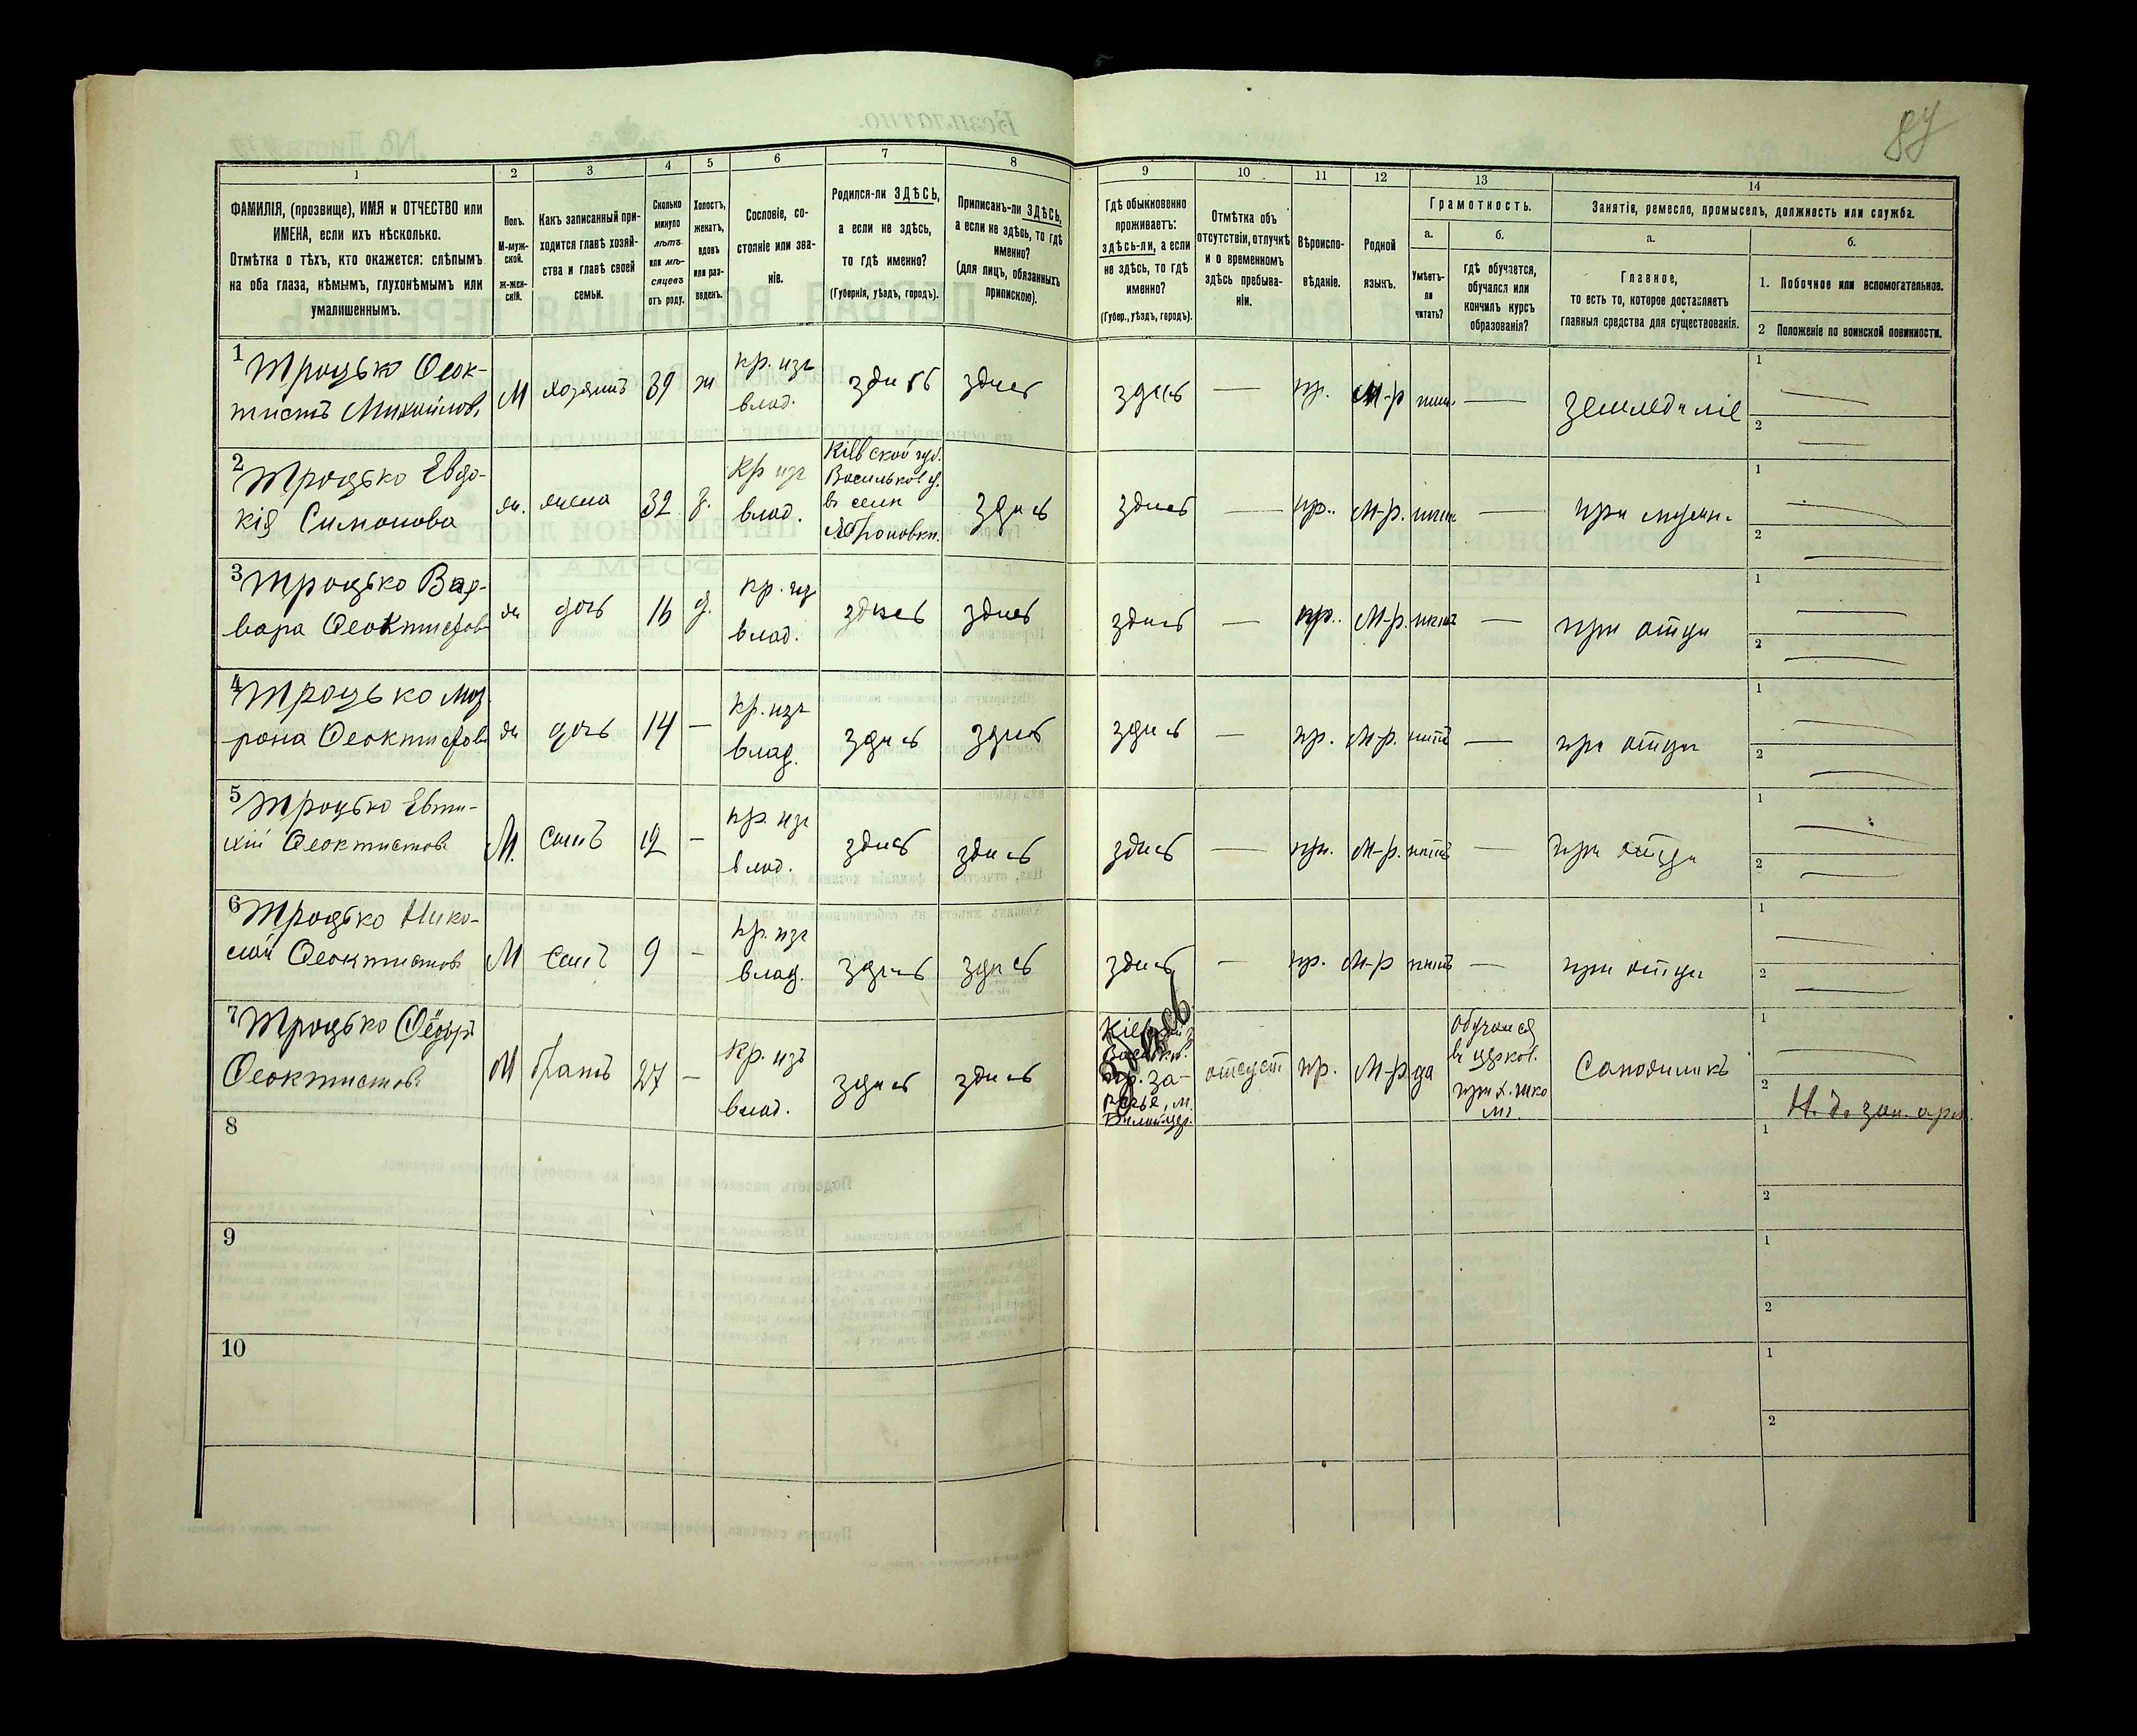 84
1
2
3
4
5
6
7
8
9
10
11
12
13
14
ФАМИЛІЯ, (прозвище), ИМЯ и ОТЧЕСТВО или
ИМЕНА, если ихъ нѣсколько.
Отмѣтка о тѣхъ, кто окажется: слѣпымъ
на оба глаза, нѣмымъ, глухонѣмымъ или
умалишеннымъ.
Полъ.
М-муж-
ской.
Ж-жен-
скій.
Какъ записанный при-
ходится главѣ хозяй-
ства и главѣ своей
семьи.
Сколько
минуло
лѣтъ
или мѣ-
сяцевъ
отъ роду.
Холостъ,
женатъ,
вдовъ
или раз-
веденъ.
Сословіе, со-
стояніе или зва-
ніе.
Родился-ли ЗДѢСЬ,
а если не здѣсь,
то гдѣ именно?
(Губернія, уѣздъ, городъ).
Приписанъ-ли ЗДѢСЬ,
а если не здѣсь, то гдѣ
именно?
(для лицъ, обязанныхъ
припискою).
Гдѣ обыкновенно
проживаетъ:
здѣсь-ли, а если
не здѣсь, то гдѣ
именно?
(Губер., уѣздъ, городъ).
Отмѣтка объ
отсутствіи, отлучкѣ
и о временномъ
здѣсь пребыва-
ніи.
Вѣроиспо-
вѣданіе.
Родной
языкъ.
Грамотность.
а.
б.
Умѣетъ-
ли
читать?
гдѣ обучается,
обучался или
кончилъ курсъ
образованія?
Занятія, ремесло, промыселъ, должность или служба.
а.
б.
Главное,
то есть то, которое доставляетъ
главныя средства для существованія.
1. Побочное или вспомогательное.
2 Положеніе по воинской повинности.
1 Троцько Ѳеок-
тистъ Михайлов.
М хозяинъ 39 ж кр. изъ
влад.
здѣсь здѣсь здѣсь — пр. М-р — земледѣліе
1
2
2 Троцько Евдо-
кія Симонова
ж. жена 32 з. кр изъ
влад.
Кіевской губ.
Васильков. у.
въ селѣ
здѣсь здѣсь — пр. М-р. нѣтъ — при мужѣ.
1
2
3 Троцько Вар-
вара Ѳеоктистов
ж дочь 16 д. кр. из
влад.
здѣсь здѣсь здѣсь — пр. М-р. нѣтъ — при отцѣ
1
2
4 Троцько Мат
рона Ѳеоктистов
ж дочь 14 — кр. изъ
влад.
здѣсь здѣсь здѣсь — пр. М-р. нѣтъ — при отцѣ
1
2
5 Троцько Евти-
хій Ѳеоктистов.
М. сынъ 12 — кр. изъ
влад.
здѣсь здѣсь здѣсь — пр. М-р. нѣтъ — при отцѣ
1
2
6 Троцько Нико-
лай Ѳеоктистов.
М сынъ 9 — кр. изъ
влад.
здѣсь здѣсь здѣсь — пр. М-р нѣтъ — при отцѣ
1
2
7 Троцько Ѳёдоръ
Ѳеоктистов.
М братъ 27 — кр. изъ
влад.
здѣсь здѣсь здѣсь
отсуст пр. М-р да
обучался
въ церков.
прих. шко
лѣ.
Саподѣликъ
1
2
8
1
2
9
1
2
10
1
2